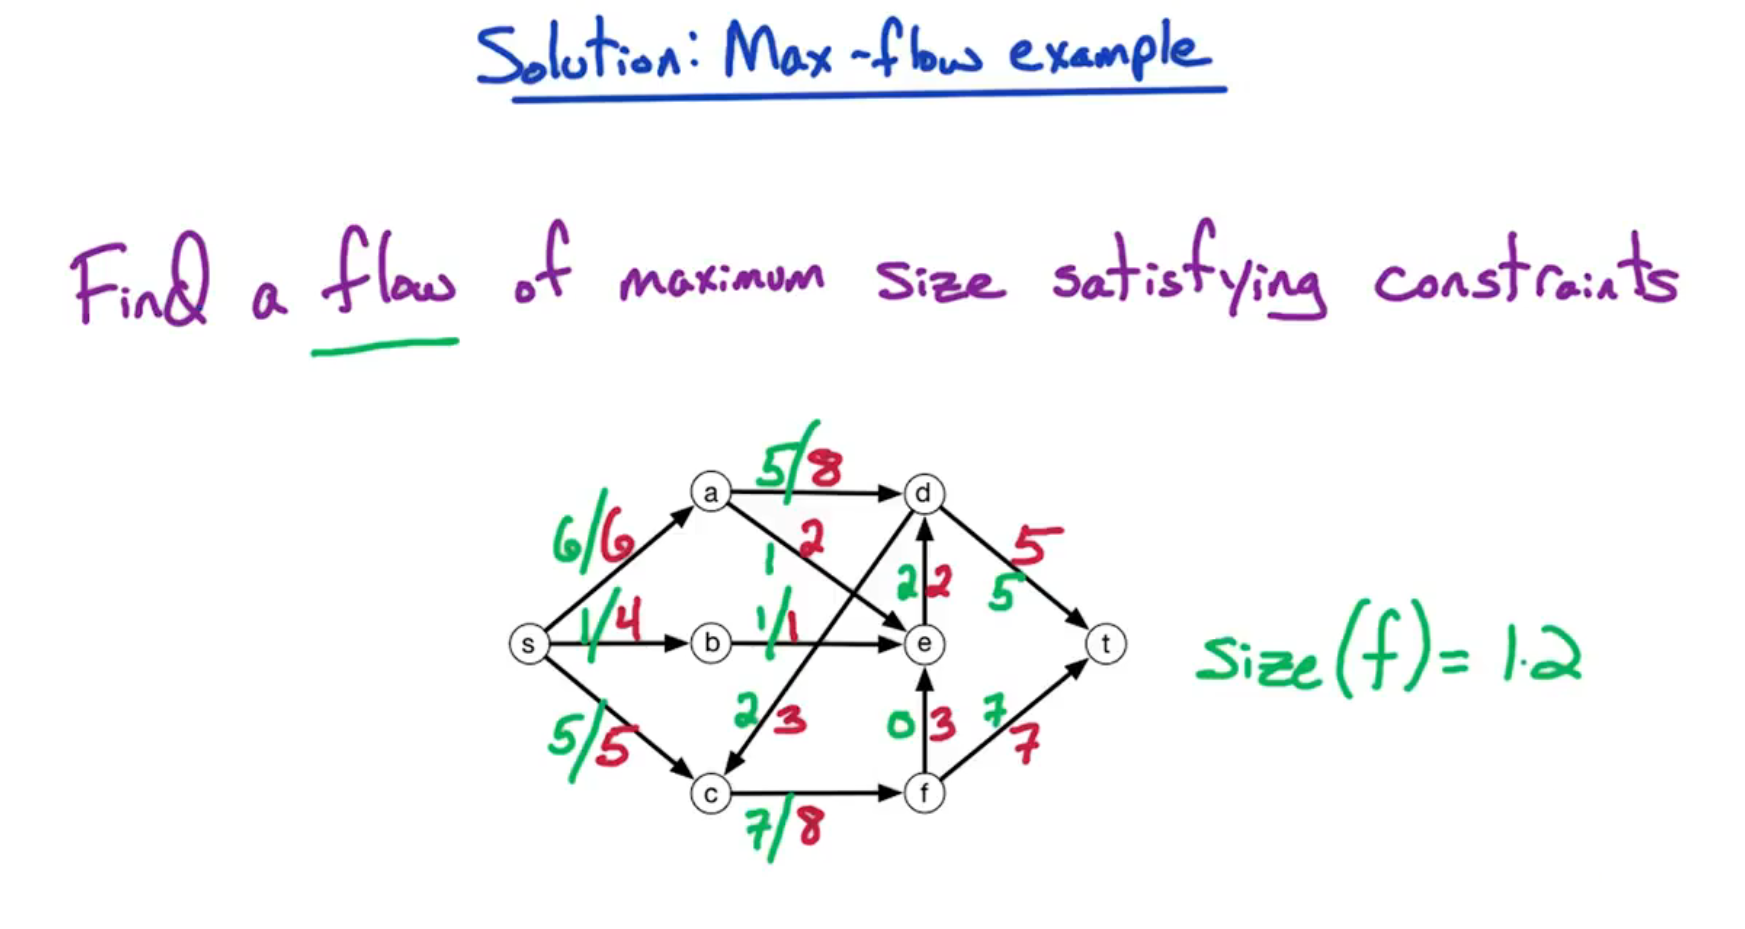 Solution: Max-flow example
Find a flow of maximum size satisfying constraints
5/8
a
d
6/6
2
1
5
2 2
5
1/4
1/1
s
b
e
t
size(f)= 12
5/5
2 3
0 3
7
7
c
f
7/8